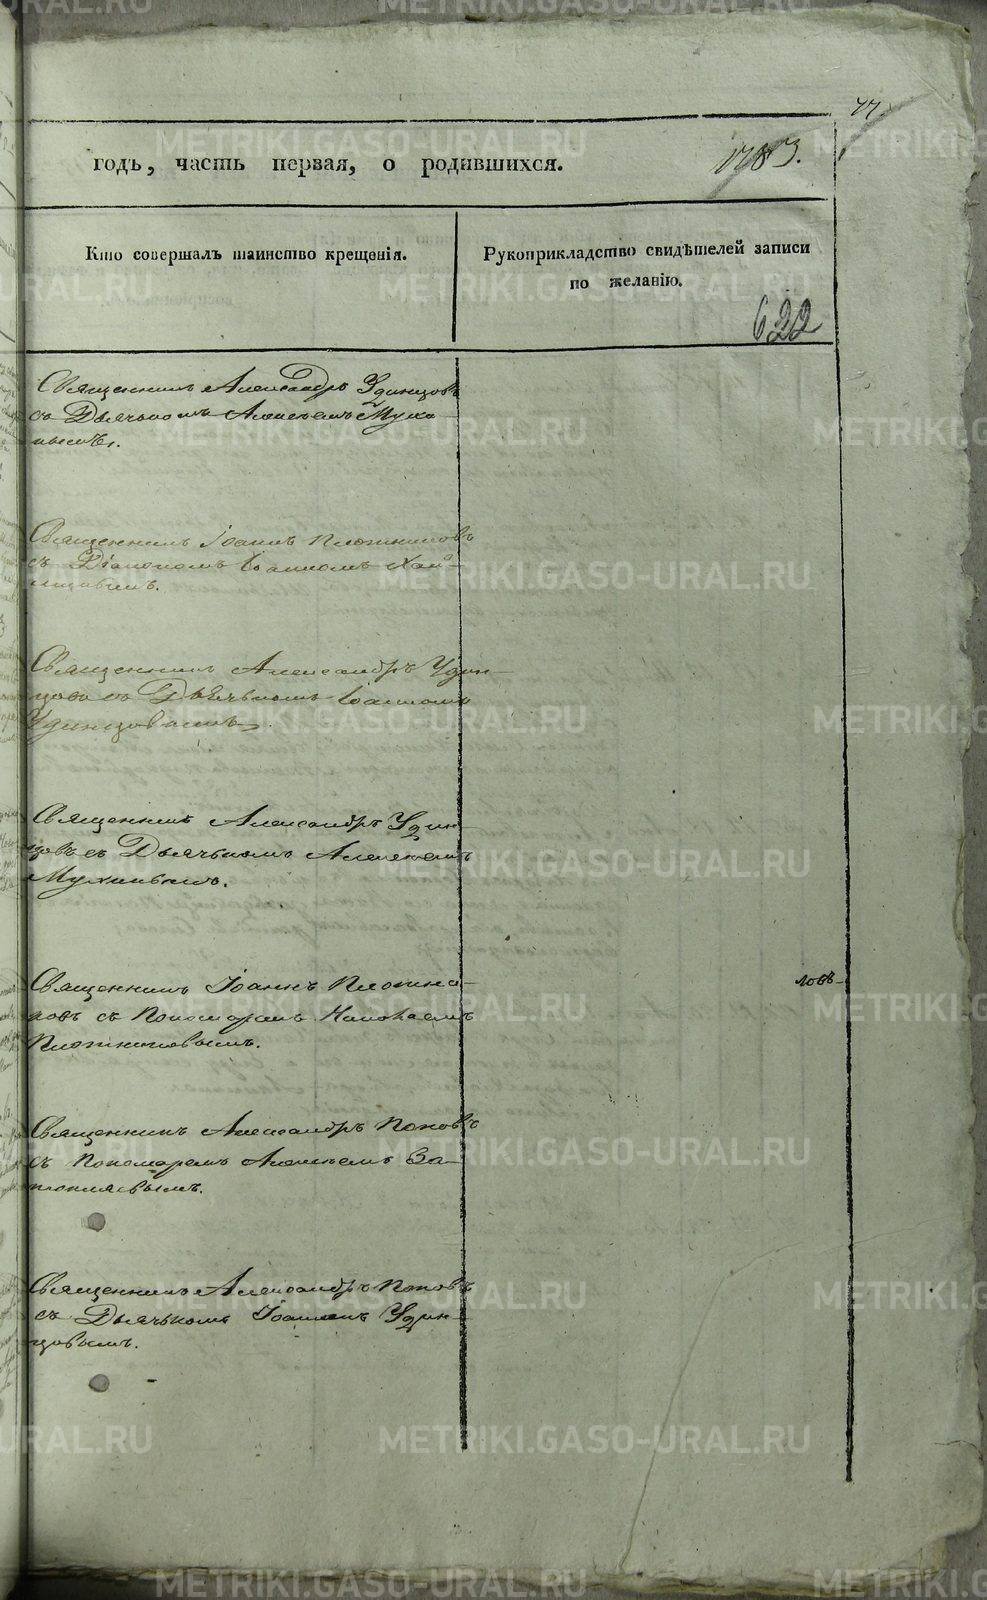 77.
годъ, часть первая, о родившихся.
1783.
Кто совершалъ таинство крещенія.
Рукоприкладство свидѣтелей записи
по желанію.
622
Священникъ Александръ Удинцовъ
съ Дьячькомъ Алексѣемъ Мухи
нымъ.
Священникъ Іоаннъ Плотниковъ
съ Діакономъ Іоанномъ
Священникъ Александръ Удин-
цовъ съ Дьячькомъ Іоанномъ
Удинцовымъ.
Священникъ Александръ Удин-
цовъ съ Дьячькомъ Алексѣемъ
Мухинымъ.
Священникъ Іоаннъ Плотни-
ковъ съ Пономаремъ Николаемъ
Плотниковымъ.
ловъ
Священникъ Александръ Поповъ
съ Пономаремъ Алексѣемъ За-
топляевымъ.
Священникъ Александръ Поповъ
съ Дьячькомъ Іоанномъ Удин-
цовымъ.
METRIKI.GASO-URAL.RU